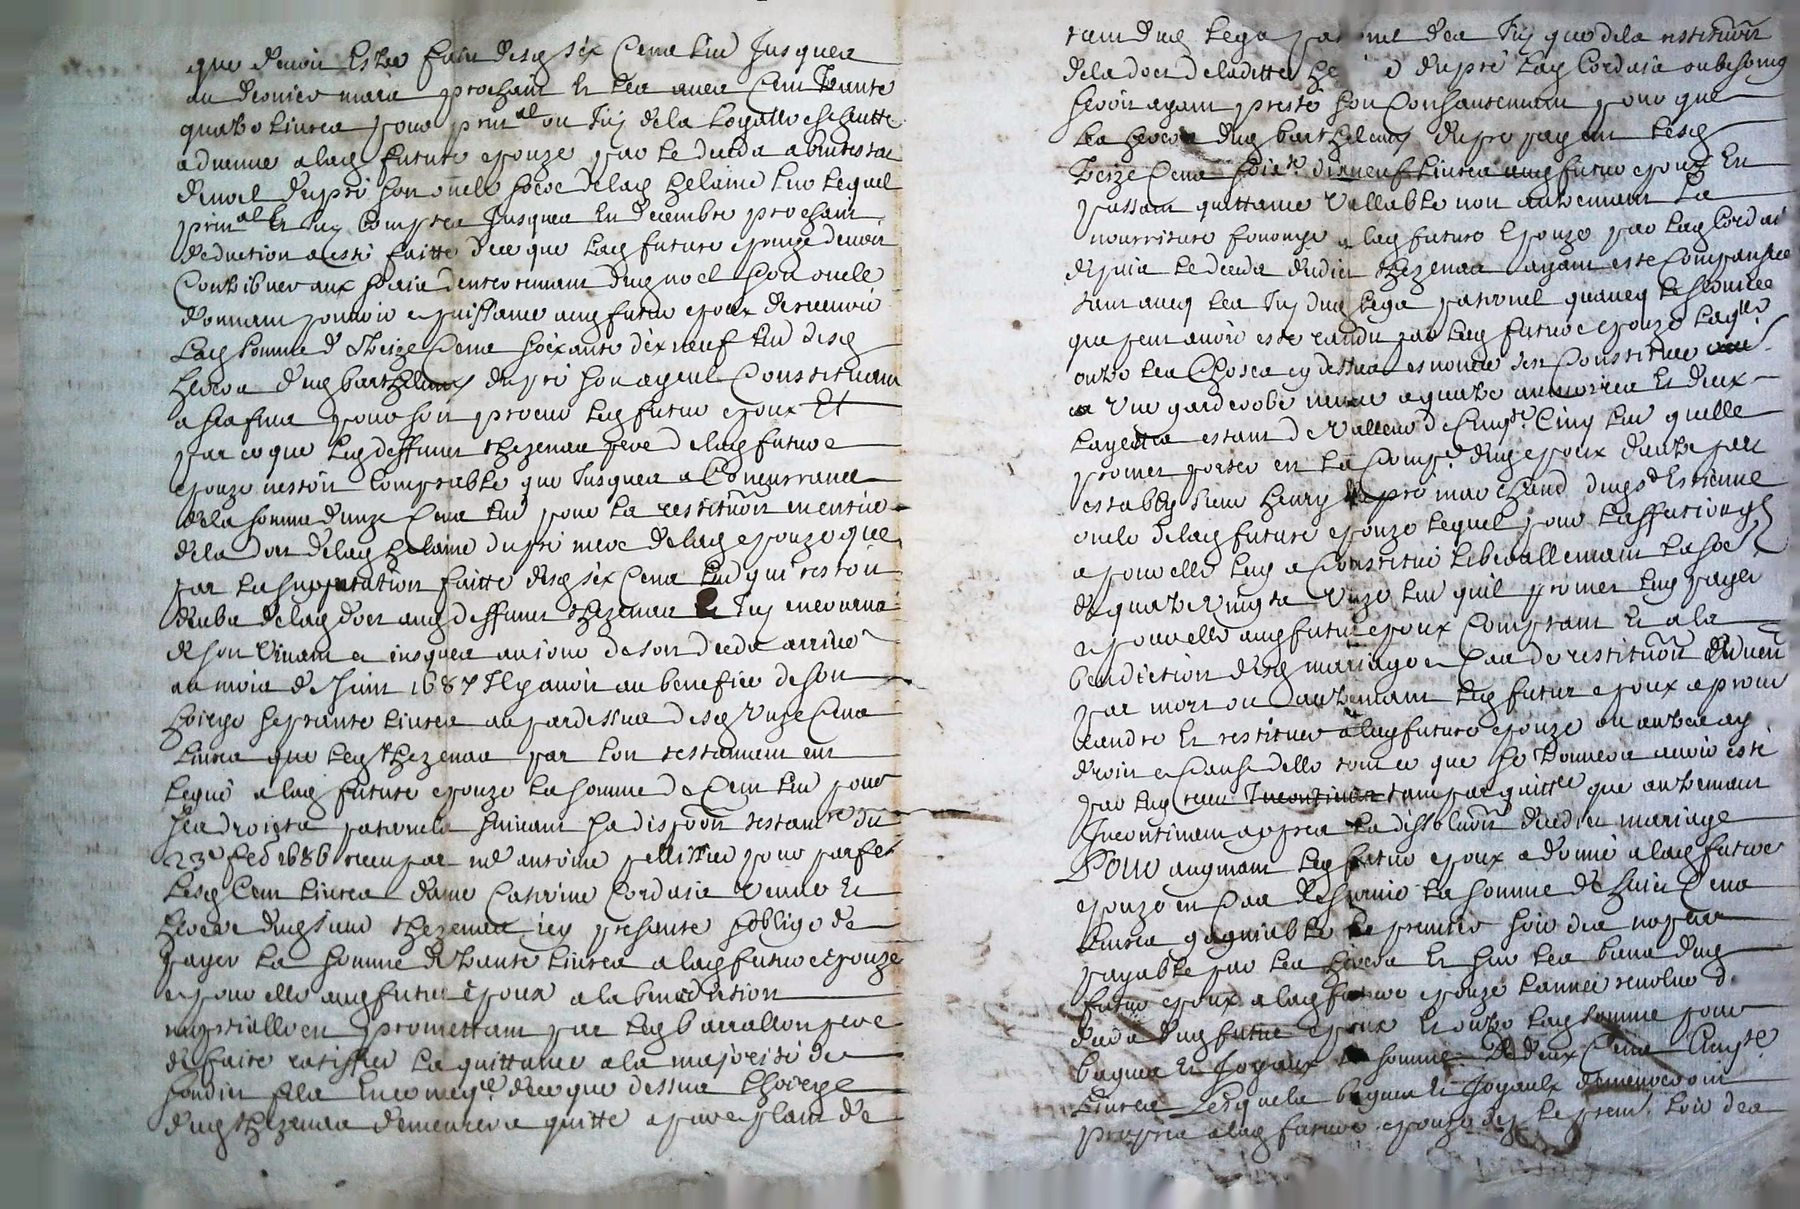 que devoit estre faitte desd six cens liu Jusques
au dernier mars prochain et les avec cent trante
quatre livres pour prin.al ou Inj de la loyalle escheutte
advenue a lad future epouze par le deceda abintestat
de noel dupré son oncle frere de lad helaine sur lequel
prin.al et Inj compris Jusques en decembre prochain
deduction a esté faitte de ce que lad future epouze devoit
contribuer aux fraix denterremant dud noel son oncle
donnant pouvoir et puissance aud futur epoux de recevoir
lad somme de treize cens soixante dix neuf liu desd
heroa dud barthelemy dupré son ayeul constituant
a sa fin pour son procur led futur epoux Et
par ce que led deffunt thezenas pere de lad future
epouze nestoit comptable que Jusques a Concurrance
de la somme dunze cens liu pour la restituōn en entier
de la dot de lad helaine dupré mere de lad epouze que
par la supputation faitte desd six cens liu qui restoit
deube de lad dot aud deffunt thezenas et Inj encourus
de son vivant et jusques au jour de son deceda arrivé
au mois de Juin 1687 Il y avoit au benefice de son
hoirye septante livres au pardessus desd unze cens
livres que led thezenas par son testament eut
legué a lad future epouze la somme de cent liu pour
ses droits paternels suivant sa dispōon testam.re du
23e feb 1686 receu par me antoine pellissier pour parfer
lesd cent livres dame Catrine Cordaix veuve et
heroe dud sieur thezenas icy presante soblige de
payer la somme de trante livres a lad future epouze
et pour elle aud futur epoux a la benediction
nuptialle en promettant par led barrallon pere
de faire ratiffier la quittance a la majorité de
sondit fils En conseq.e de ce que dessus lhoirye
dud thezenas demeurera quitte a pur et plain de
tant dud lega paternel des Inj que de la restituōn
de la dot de laditte dupré lad Cordaix ou besoing
seroit ayant presté son consantement pour que
les heroa dud barthelemy dupré payent lesd
treize cens soix.te dixneuf livres aud futur epoux En
passant quittance vallable non autrement La
nourriture fournye a lad future Epouze par lad Cordaix
depuis le deceda dudit thezenas ayant esté compansée
tant avec les Inj dud lega paternel quavec le service
que peut avoir esté randu par lad future epouze laq.lle
outre les choses cy dessus esnoncé sest constituée
une garderobe neuve a quatre armoires et deux
layettes estant de valleur de cinq.te cinq liu quelle
promet porter en la comp.e dud epoux dautre part
estably sieur henry dupré marchand dud st Estienne
oncle de lad future epouze lequel pour laffection q'l
a pour elle luy a constitué liberallement la soe
de quatre vingts unze liu quil promet luy payer
et pour elle aud futur epoux comptant et a la
benediction desd mariage Cas de restituōn advent
par mort ou autremant led futur epoux a promis
randre et restituer a lad future epouze ou autre ay
droit et cause delle tout ce que se trouvera avoir esté
par luy receu tant par quitt.ce que autremant
Incontinant apprès la dissoluōn dudit mariage
Pour augmant led futur epoux a donné a lad future
epouze en cas de survie la somme de huit cens
livres gagniable le premier soir des nopces
payable par les heroa et sur les biens dud
futur epoux a lad future epouze lannée revolue d.
deceda dud futur epoux Et outre lad somme pour
bagues et Joyaux la somme de deux cens cinq.te
livres Lesquels bagues et Joyaulx demeureront
propres a lad future epouze dez le prem. soir des